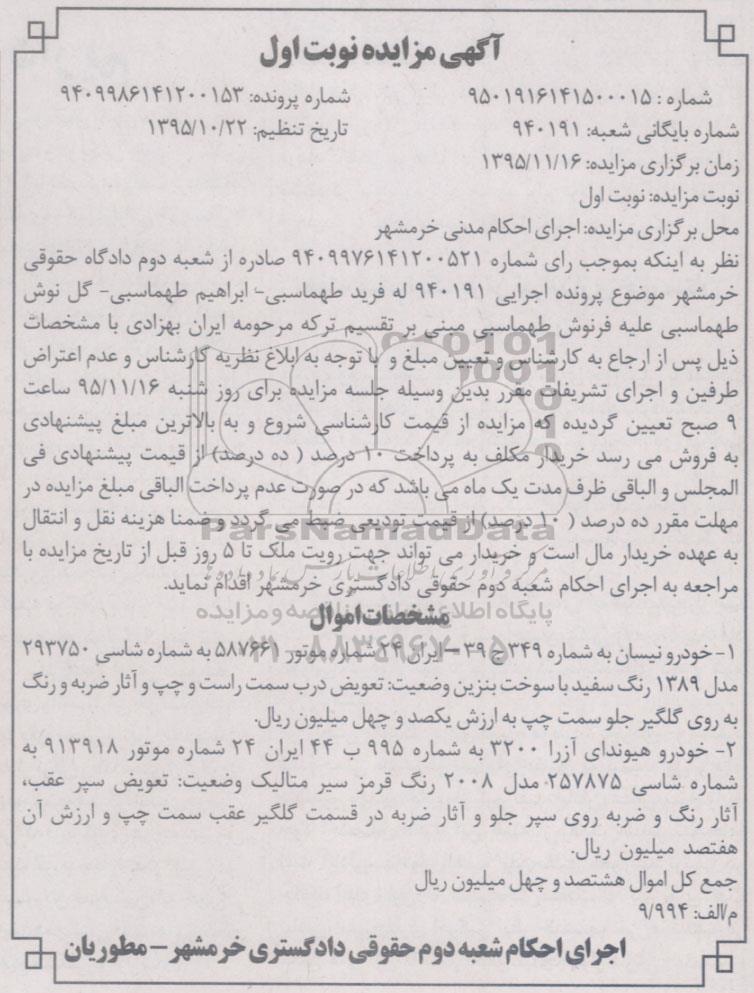 آگهی مزایده نوبت اول
شماره : ۹۵۰۱۹۱۶۱۴۱۵۰۰۰۱۵ شماره پرونده: ۹۴۰۹۹۸۶۱۴۱۲۰۰۱۵۳
شماره بایگانی شعبه: ۹۴۰۱۹۱ تاریخ تنظیم: ۱۳۹۵/۱۰/۲۲
زمان برگزاری مزایده: ۱۳۹۵/۱۱/۱۶
نوبت مزایده: نوبت اول
محل برگزاری مزایده: اجرای احکام مدنی خرمشهر
نظر به اینکه بموجب رای شماره ۹۴۰۹۹۷۶۱۴۱۲۰۰۵۲۱ صادره از شعبه دوم دادگاه حقوقی
خرمشهر موضوع پرونده اجرایی ۹۴۰۱۹۱ له فرید طهماسبی- ابراهیم طهماسبی- گل نوش
طهماسبی علیه فرنوش طهماسبی مبنی بر تقسیم ترکه مرحومه ایران بهزادی با مشخصات
ذیل پس از ارجاع به کارشناس و تعیین مبلغ و با توجه به ابلاغ نظریه کارشناس و عدم اعتراض
طرفین و اجرای تشریفات مقرر بدین وسیله جلسه مزایده برای روز شنبه ۹۵/۱۱/۱۶ ساعت
۹ صبح تعیین گردیده که مزایده از قیمت کارشناسی شروع و به بالاترین مبلغ پیشنهادی
به فروش می رسد خریدار مکلف به پرداخت ۱۰ درصد ( ده درصد) از قیمت پیشنهادی فی
المجلس و الباقی ظرف مدت یک ماه می باشد که در صورت عدم پرداخت الباقی مبلغ مزایده در
مهلت مقرر ده درصد ( ۱۰ درصد) از قیمت تودیعی ضبط می گردد و ضمنا هزینه نقل و انتقال
به عهده خریدار مال است و خریدار می تواند جهت رویت ملک تا ۵ روز قبل از تاریخ مزایده با
مراجعه به اجرای احکام شعبه دوم حقوقی دادگستری خرمشهر اقدام نماید.
مشخصات اموال
۱- خودرو نیسان به شماره ۳۴۹ ج ۳۹ – ایران ۲۴ شماره موتور ۵۸۷۶۶۱ به شماره شاسی ۲۹۳۷۵۰
مدل ۱۳۸۹ رنگ سفید با سوخت بنزین وضعیت: تعویض درب سمت راست و چپ و آثار ضربه و رنگ
به روی گلگیر جلو سمت چپ به ارزش یکصد و چهل میلیون ریال.
۲- خودرو هیوندای آزرا ۳۲۰۰ به شماره ۹۹۵ ب ۴۴ ایران ۲۴ شماره موتور ۹۱۳۹۱۸ به
شماره شاسی ۲۵۷۸۷۵ مدل ۲۰۰۸ رنگ قرمز سیر متالیک وضعیت: تعویض سپر عقب،
آثار رنگ و ضربه روی سپر جلو و آثار ضربه در قسمت گلگیر عقب سمت چپ و ارزش آن
هفتصد میلیون ریال.
جمع کل اموال هشتصد و چهل میلیون ریال
م/الف: ۹/۹۹۴
اجرای احکام شعبه دوم حقوقی دادگستری خرمشهر – مطوریان
ParsNamadData